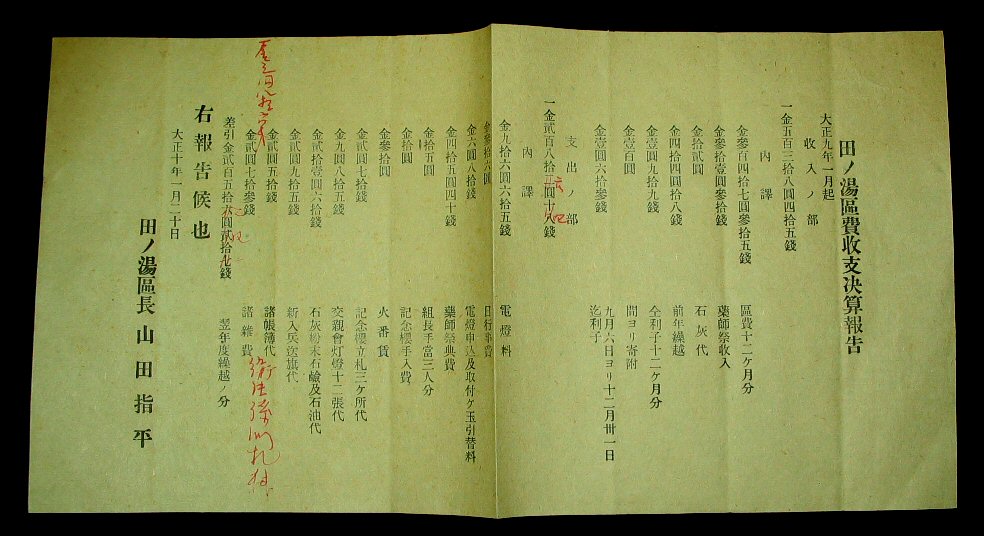 田ノ湯區費收支决算報告
大正九年一月起
收入ノ部
一金五百三拾八圓四拾五錢
內譯
金參百四拾七圓參拾五錢 區費十二ケ月分
金參拾壹圓參拾錢 藥師祭收入
金拾貳圓 石灰代
金四拾四圓拾八錢 前年繰越
金壹圓九拾九錢 仝利子十二ケ月分
金壹百圓 間ヨリ寄附
金壹圓六拾參錢 九月六日ヨリ十二月卅一日迄利子
支出ノ部
一金貳百八拾五圓十八錢
內譯
金九拾六圓六拾五錢 電燈料
金參拾六圓 日行事費
金六圓八拾錢 電燈申込及取付ケ玉引替料
金四拾五圓四十錢 藥師祭典費
金拾五圓 組長手當三人分
金拾圓 記念樓手入費
金參拾圓 火番賃
金貳圓七拾錢 記念樓立札三ケ所代
金九圓八拾五錢 交親會灯燈十二張代
金貳拾壹圓六拾錢 石灰粉末石鹼及石油代
金貳圓九拾五錢 新入兵送旗代
金貳圓五拾錢 諸帳簿代
金貳圓七拾參錢 諸雜費
差引金貳百五拾 圓貳拾 錢 翌年度繰越ノ分
右報告候也
大正十年一月二十日
田ノ湯區長 山田指平